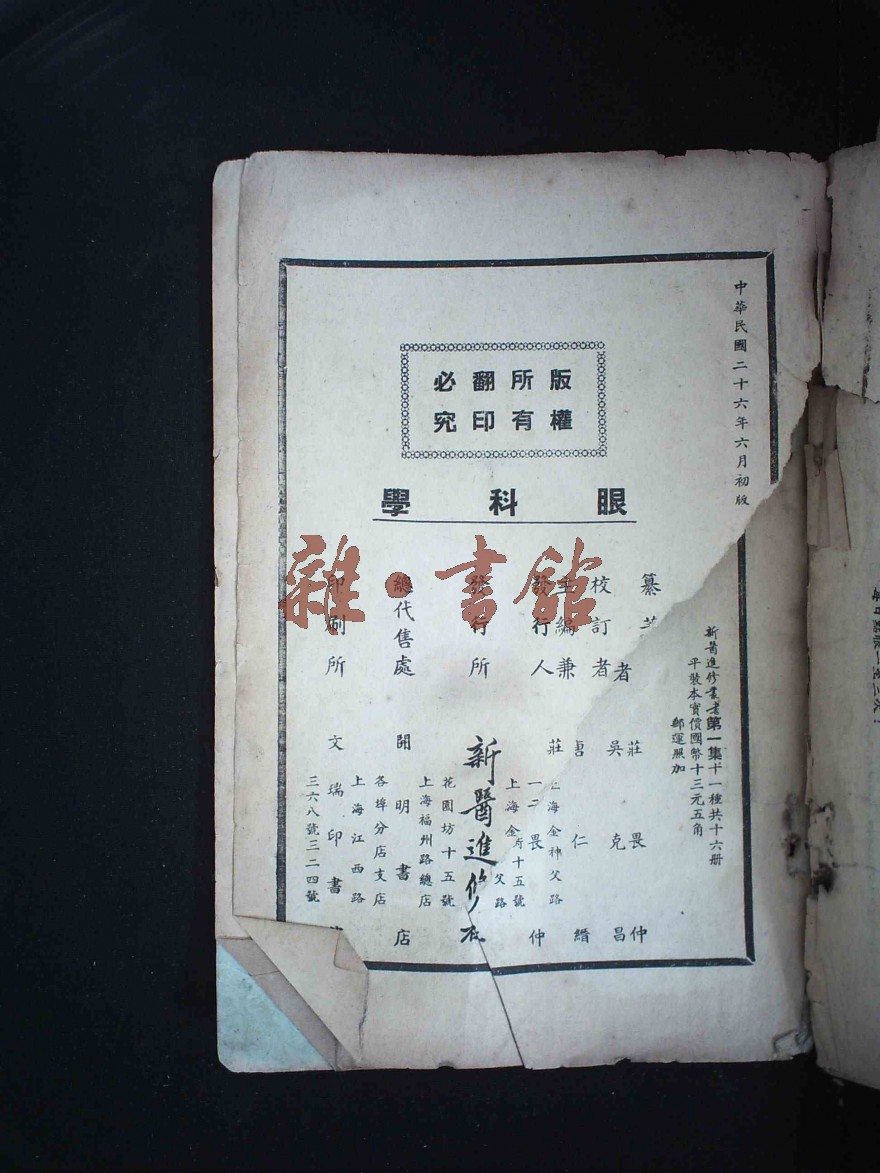 中華民國二十六年六月初版
版權
所有
翻印
必究
眼科學
新醫進修叢書第一集十一種共十六册
平裝本實價國幣十三元五角
郵運照加
纂 者 莊畏仲
校訂者 吳克昌
唐仁縉
主編兼
發行人 莊畏仲
上海金神父路
花園坊十五號
發行所 新醫進修社
上海金 父路
花園坊十五號
總代售處 開明書店
上海福州路總店
各埠分店支店
印刷所 文瑞印書
上海江西路
三六八號三二四號
雜·書館